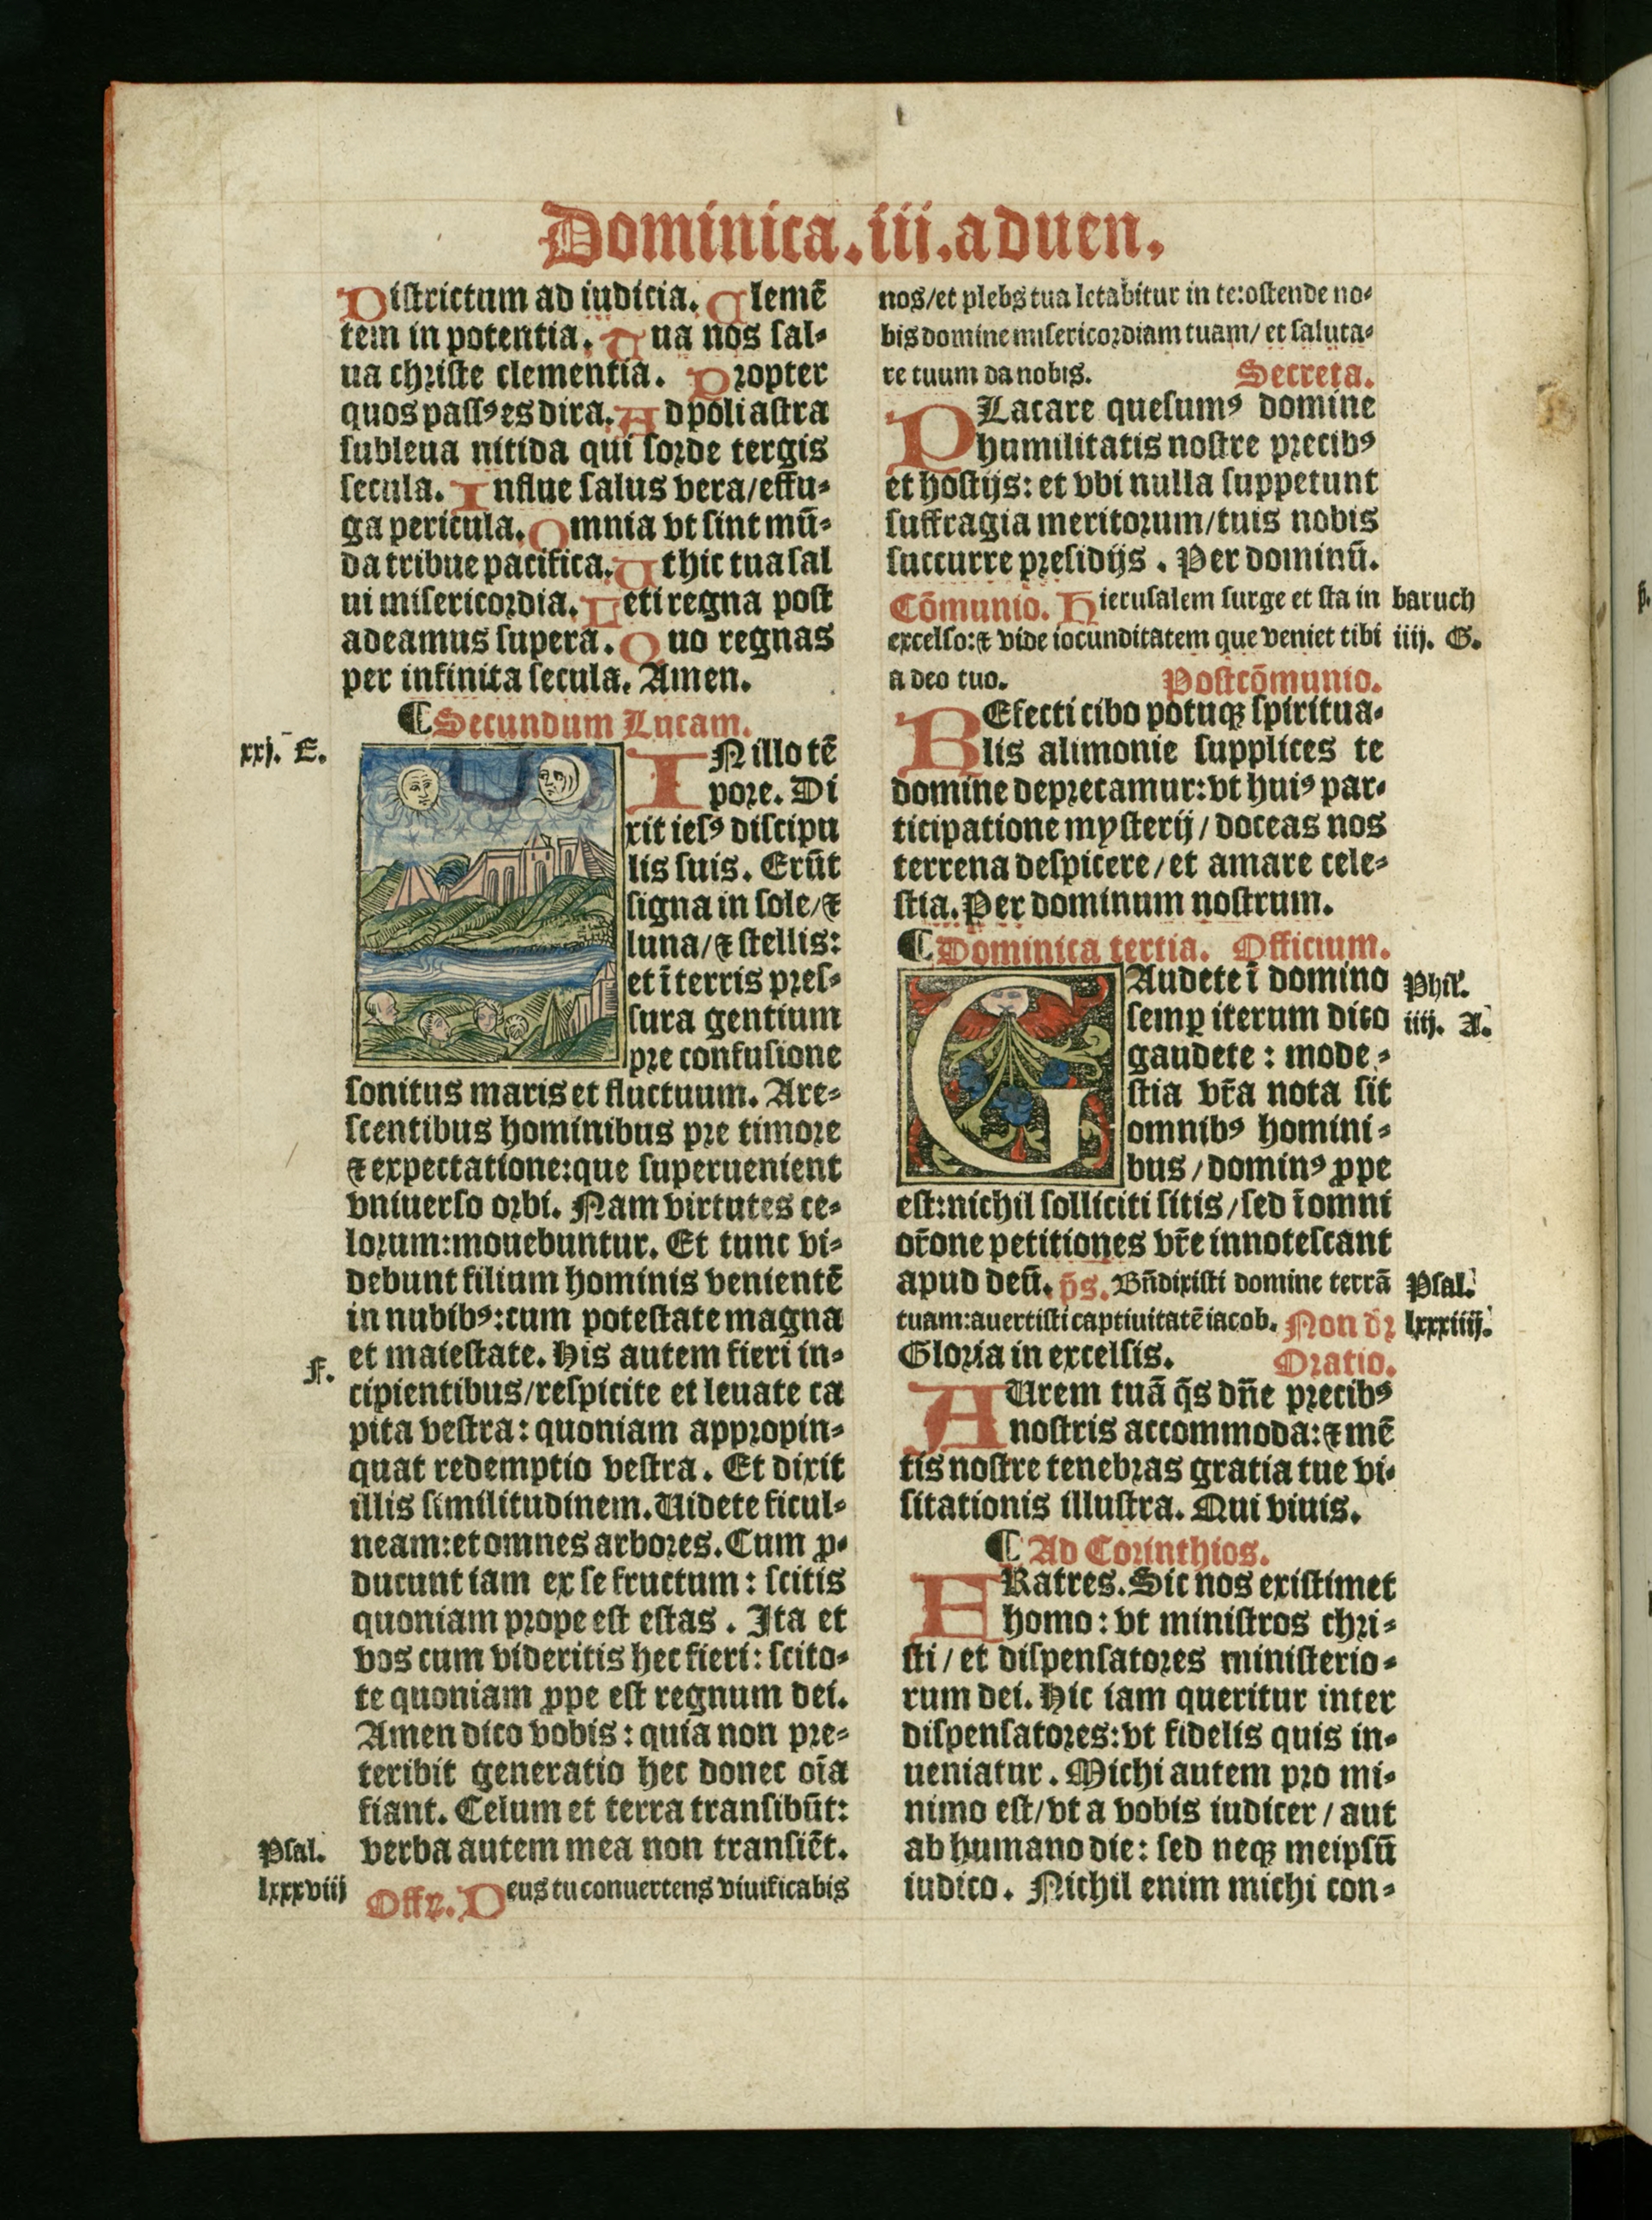 Dominica.iii.aduen.
Districtum ad iudicia. Clemē
tem in potentia. Tua nos sal⸗
ua christe clementia. Propter
quos passꝰ es dira. Ad poli astra
subleua nitida qui sorde tergis
secula. Influe salus vera/effu⸗
ga pericula. Omnia vt sint mū⸗
da tribue pacifica. Ut hic tua sal
ui misericordia. Leti regna post
adeamus supera. Quo regnas
per infinita secula. Amen.
¶ Secundum Lucam.
xxj. E.
IN illo tē
pore. Di
xit iesꝰ discipu
lis suis. Erūt
signa in sole/⁊
luna/⁊ stellis:
et ī terris pres⸗
sura gentium
pre confusione
sonitus maris et fluctuum. Are⸗
scentibus hominibus pre timore
⁊ expectatione:que superuenient
vniuerso orbi. Nam virtutes ce⸗
lorum:mouebuntur. Et tunc vi⸗
debunt filium hominis venientē
in nubibꝰ:cum potestate magna
F. et maiestate. His autem fieri in⸗
cipientibus/respicite et leuate ca
pita vestra: quoniam appropin⸗
quat redemptio vestra. Et dixit
illis similitudinem. Uidete ficul⸗
neam:et omnes arbores. Cum ꝓ⸗
ducunt iam ex se fructum: scitis
quoniam prope est estas. Ita et
vos cum videritis hec fieri: scito⸗
te quoniam ꝓpe est regnum dei.
Amen dico vobis: quia non pre⸗
teribit generatio hec donec oīa
fiant. Celum et terra transibūt:
Psal. verba autem mea non transiēt.
lxxxviij Offꝝ. Deus tu conuertens viuificabis
nos/et plebs tua letabitur in te:ostende no⸗
bis domine misericordiam tuam/ et saluta⸗
re tuum da nobis. Secreta.
PLacare quesumꝰ domine
humilitatis nostre precibꝰ
et hostijs: et vbi nulla suppetunt
suffragia meritorum/tuis nobis
succurre presidijs. Per dominū.
Cōmunio. Hierusalem surge et sta in baruch
excelso:⁊ vide iocunditatem que veniet tibi iiij. G.
a deo tuo. Postcōmunio.
REfecti cibo potuqꝫ spiritua⸗
lis alimonie supplices te
domine deprecamur:vt huiꝰ par⸗
ticipatione mysterij/doceas nos
terrena despicere/et amare cele⸗
stia. Per dominum nostrum.
¶ Dominica tertia. Officium.
GAudete ī domino Phil'.
semꝑ iterum dico iiij. A.
gaudete: mode⸗
stia vr̄a nota sit
omnibꝰ homini⸗
bus/dominꝰ ꝓpe
est:nichil solliciti sitis/sed ī omni
or̄one petitiones vr̄e innotescant
apud deū. p̄s. Bn̄dixisti domine terrā Psal.
tuam:auertisti captiuitatē iacob. Non dꝛ lxxxiiij.
Gloria in excelsis. Oratio.
AUrem tuā q̄s dn̄e precibꝰ
nostris accommoda:⁊ mē
tis nostre tenebras gratia tue vi⸗
sitationis illustra. Qui viuis.
¶ Ad Corinthios.
FRatres. Sic nos existimet
homo: vt ministros chri⸗
sti/et dispensatores ministerio⸗
rum dei. Hic iam queritur inter
dispensatores:vt fidelis quis in⸗
ueniatur. Michi autem pro mi⸗
nimo est/vt a vobis iudicer/aut
ab humano die: sed neqꝫ meipsū
iudico. Nichil enim michi con⸗